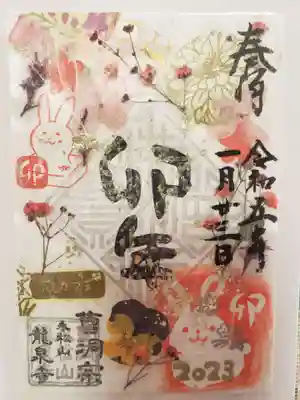 奉拝
令和五年
一月廿三日
卯年
卯
曹洞宗
龍泉寺
卯
2023